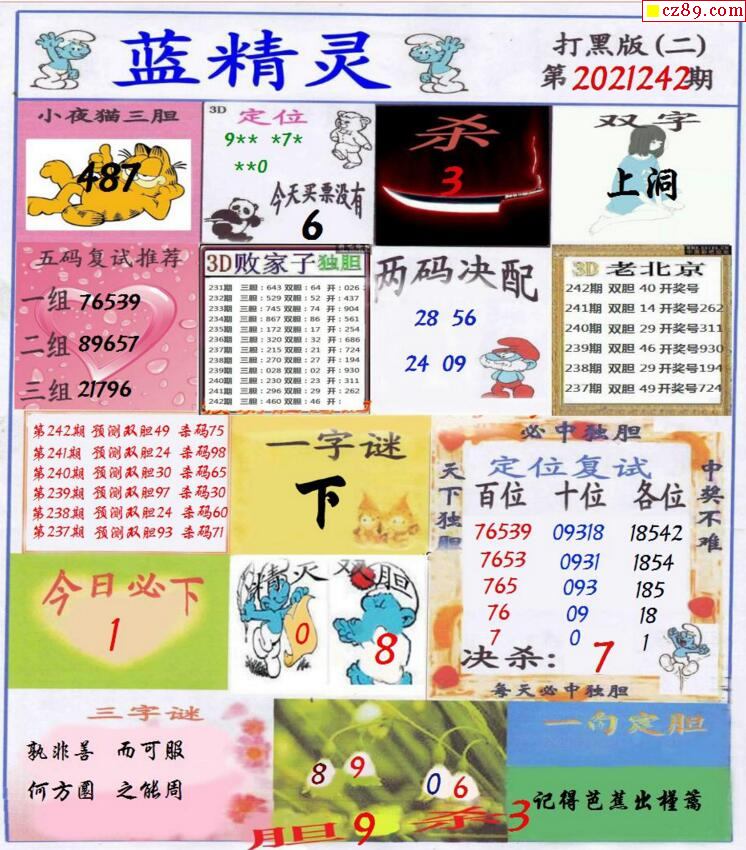 cz89.com
蓝精灵
打黑版(二)
第2021242期
小夜猫三胆
487
3D 定位
9** *7*
**0
今天买票没有
6
杀
3
双字
上洞
五码复试推荐
一组 76539
二组 89657
三组 21796
3D败家子独胆
231期 三胆：643 双胆：64 开：026
232期 三胆：529 双胆：52 开：437
233期 三胆：745 双胆：74 开：904
234期 三胆：867 双胆：86 开：561
235期 三胆：172 双胆：17 开：254
236期 三胆：320 双胆：32 开：686
237期 三胆：215 双胆：21 开：724
238期 三胆：270 双胆：27 开：194
239期 三胆：028 双胆：02 开：930
240期 三胆：230 双胆：23 开：311
241期 三胆：296 双胆：29 开：262
242期 三胆：460 双胆：46 开：
两码决配
28 56
24 09
3D 老北京
242期 双胆 40 开奖号
241期 双胆 14 开奖号262
240期 双胆 29 开奖号311
239期 双胆 46 开奖号930
238期 双胆 29 开奖号194
237期 双胆 49 开奖号724
第242期 预测双胆49 杀码75
第241期 预测双胆24 杀码98
第240期 预测双胆30 杀码65
第239期 预测双胆97 杀码30
第238期 预测双胆24 杀码60
第237期 预测双胆93 杀码71
一字谜
下
必中独胆
天下独胆
中奖不难
定位复试
百位 十位 各位
76539 09318 18542
7653 0931 1854
765 093 185
76 09 18
7 0 1
决杀：7
每天必中独胆
今日必下
1
精灵双胆
0 8
三字谜
孰非善 而可服
何方圆 之能周
8 9 0 6
胆9 杀3
一句定胆
记得芭蕉出槿篱